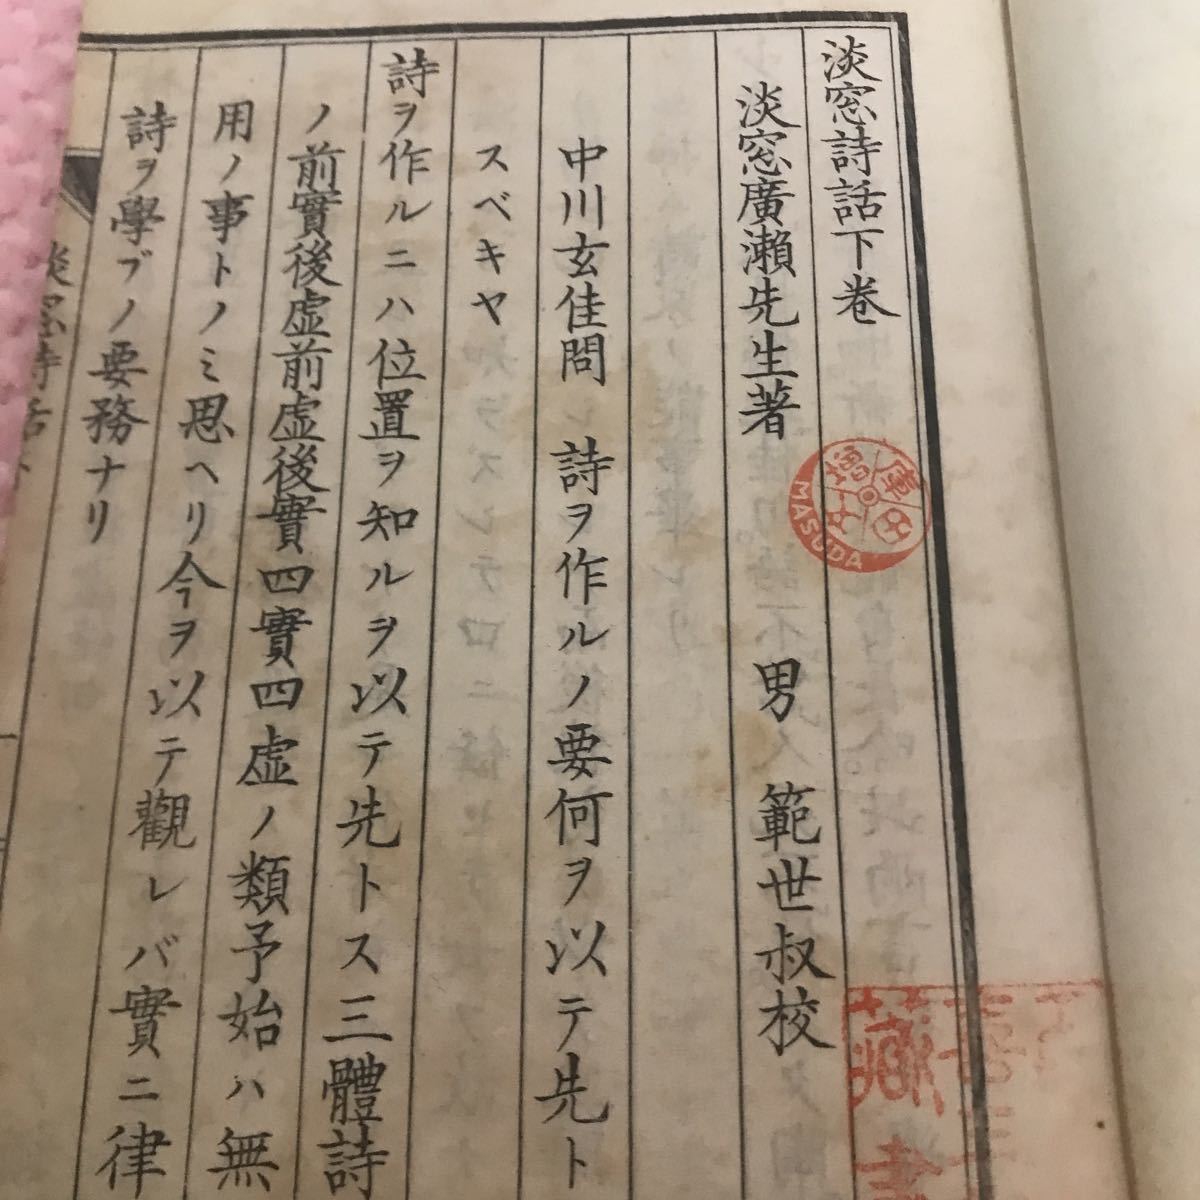 淡窓詩話下卷
淡窓廣瀬先生著 男 範世叔校
中川玄佳問 詩ヲ作ルノ要何ヲ以テ先ト
スベキヤ
詩ヲ作ルニハ位置ヲ知ルヲ以テ先トス三體詩
ノ前實後虚前虚後實四實四虚ノ類予始ハ無
用ノ事トノミ思ヘリ今ヲ以テ觀レバ實ニ律
詩ヲ學ブノ要務ナリ
淡窓詩話下
MASUDA